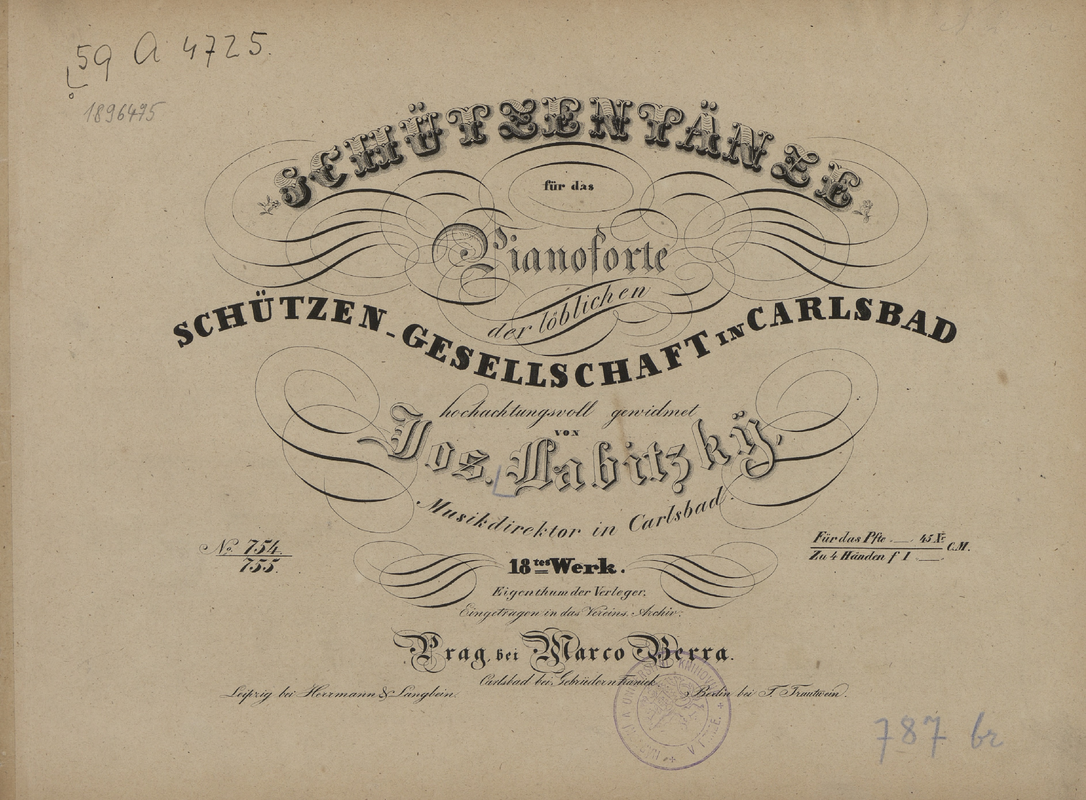 59 A 4725.
1896495
SCHÜTZENTÄNZE
für das
Pianoforte
der löblichen
SCHÜTZEN-GESELLSCHAFT IN CARLSBAD
hochachtungsvoll gewidmet
VON
Jos. Labitzkÿ,
Musikdirektor in Carlsbad.
No. 754.
755.
Für das Pfte 45 Xr
Zu 4 Händen f 1
C.M.
18tes Werk.
Eigenthum der Verleger.
Eingetragen in das Vereins-Archiv.
Prag, bei Marco Berra.
Carlsbad bei Gebrüdern
Leipzig bei Herrmann & Langbein.
Berlin bei T. Trautwein.
787 br